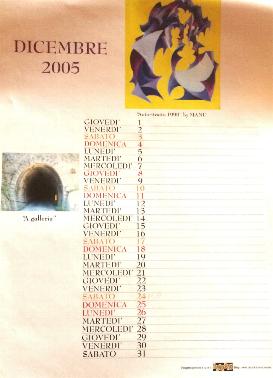 DICEMBRE
2005
"Autoritratto 1990" by MANU
GIOVEDI' 1
VENERDI' 2
SABATO 3
DOMENICA 4
LUNEDI' 5
MARTEDI' 6
MERCOLEDI' 7
GIOVEDI' 8
VENERDI' 9
SABATO 10
DOMENICA 11
LUNEDI' 12
MARTEDI' 13
MERCOLEDI' 14
GIOVEDI' 15
VENERDI' 16
SABATO 17
DOMENICA 18
LUNEDI' 19
MARTEDI' 20
MERCOLEDI' 21
GIOVEDI' 22
VENERDI' 23
SABATO 24
DOMENICA 25
LUNEDI' 26
MARTEDI' 27
MERCOLEDI' 28
GIOVEDI' 29
VENERDI' 30
SABATO 31
"A galleria"